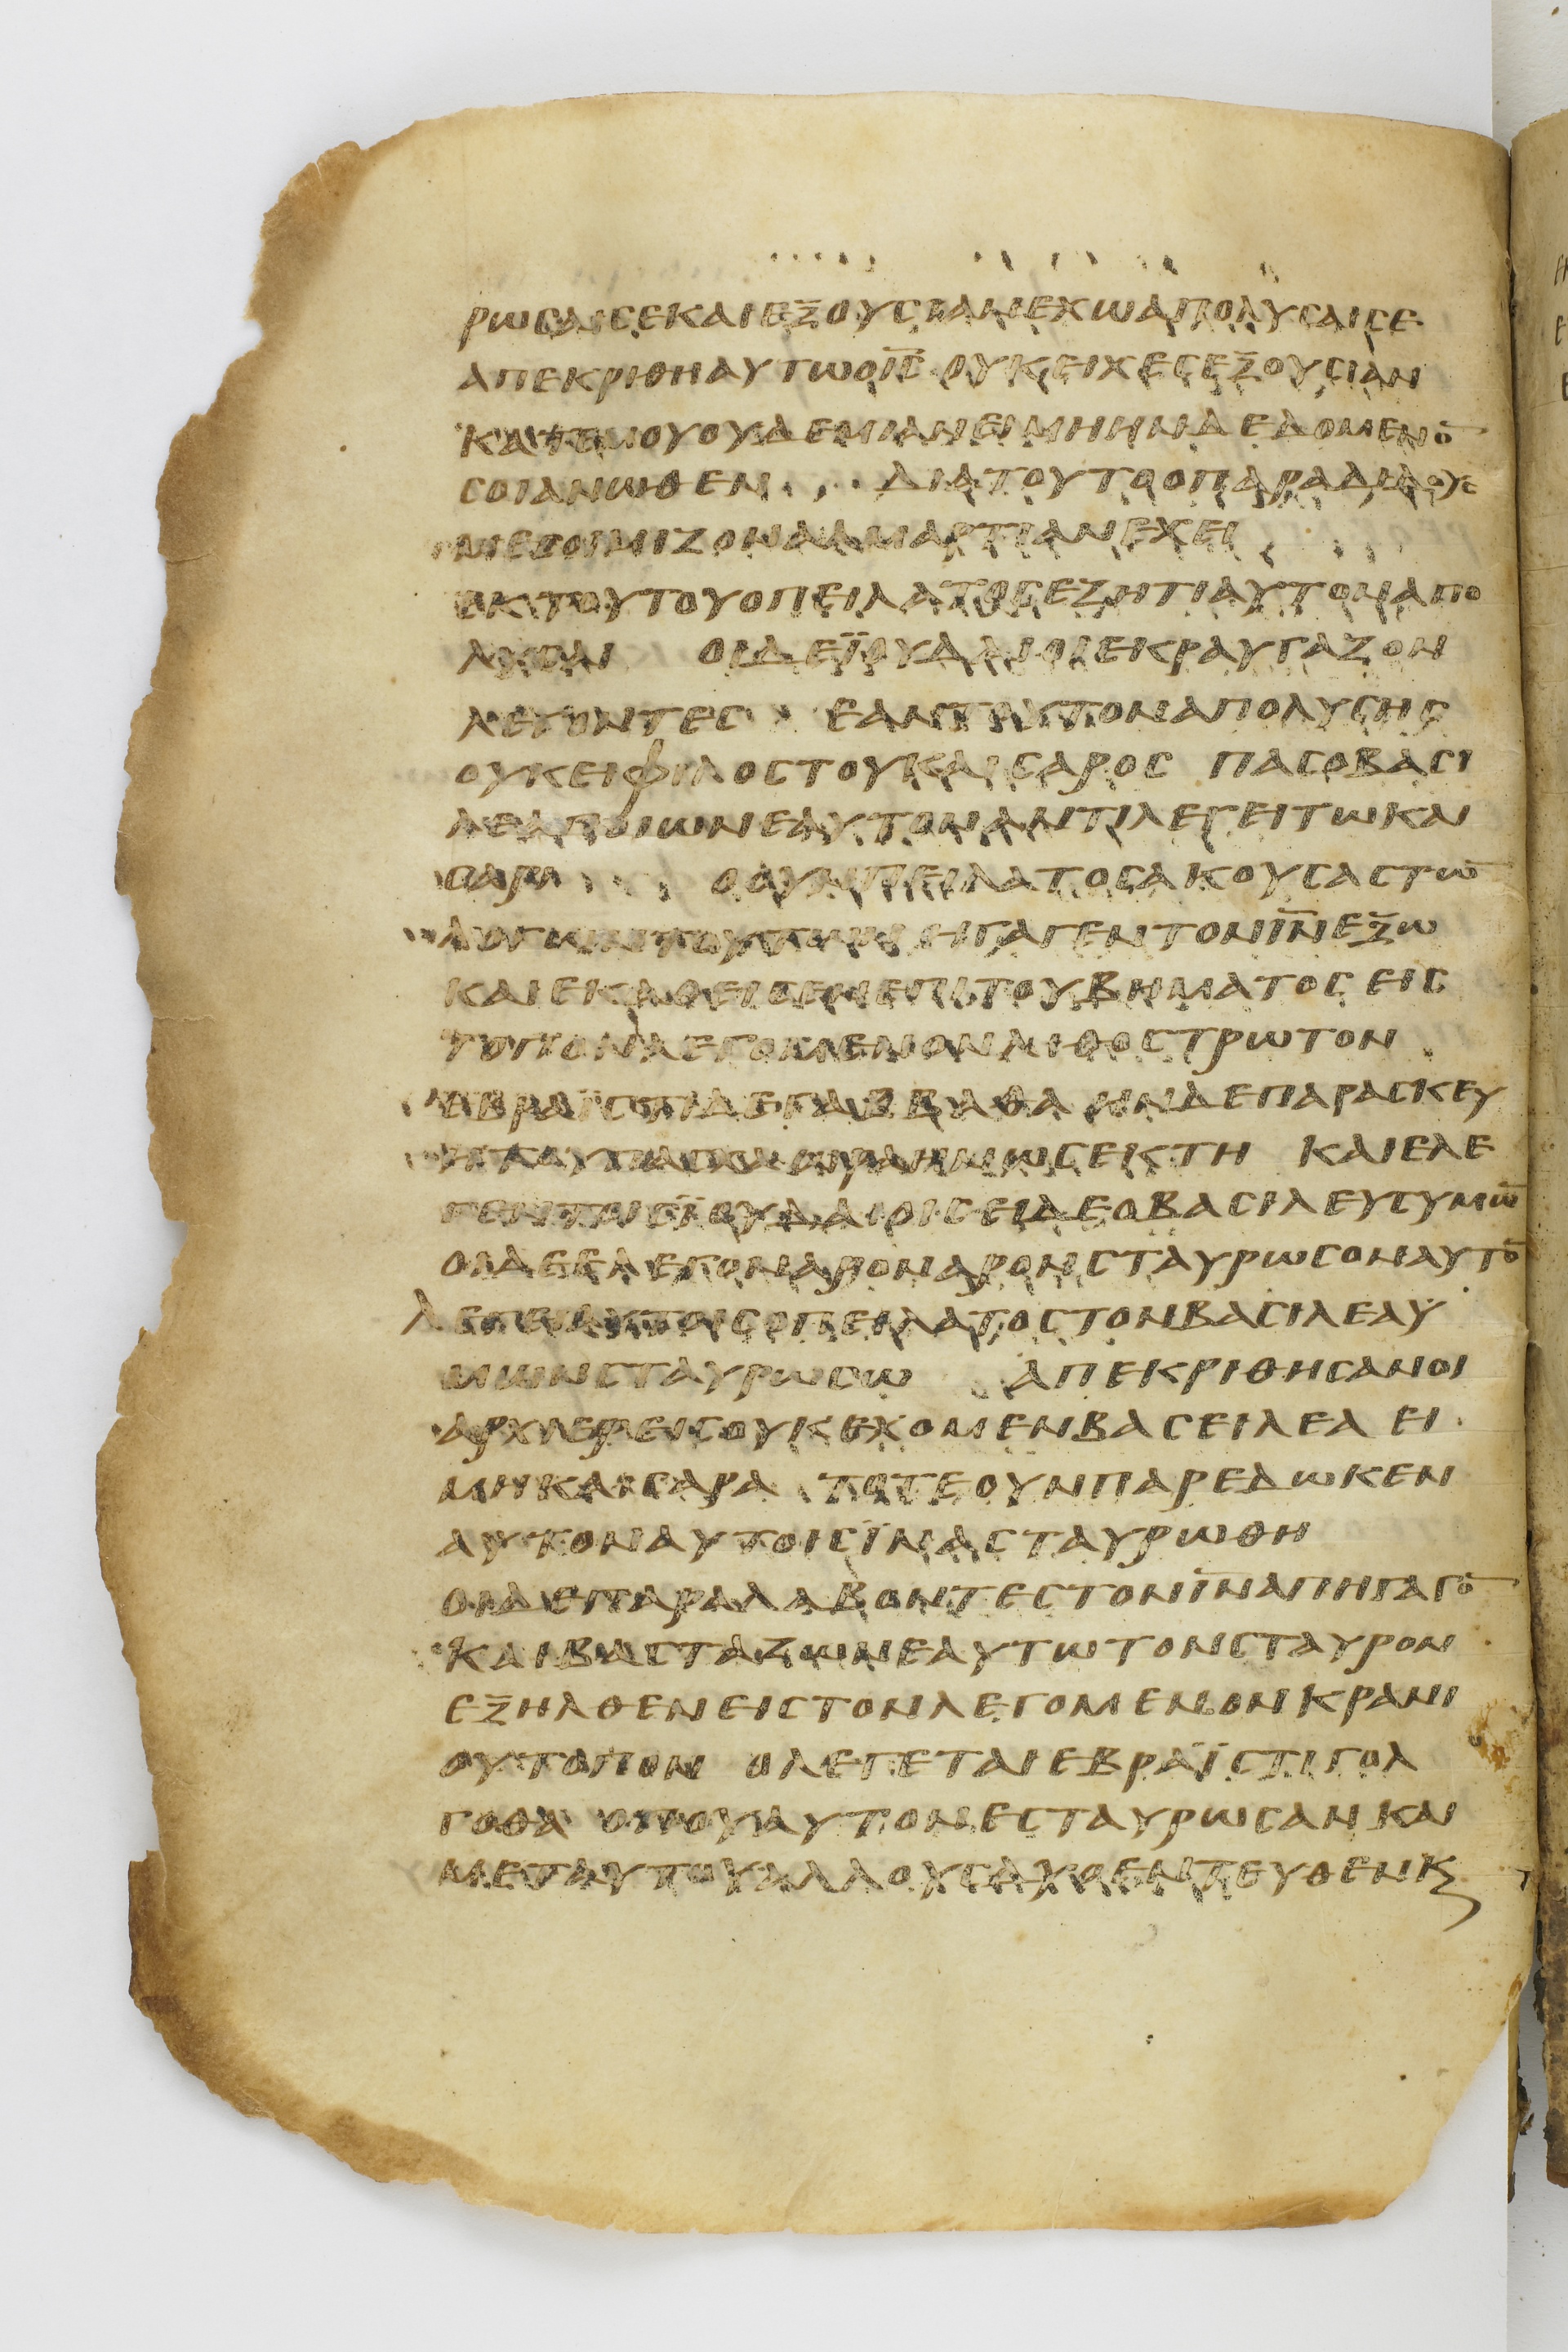 ρωσαισεκαιεξουσιανεχωαπολυσαισε
απεκριθηαυτωοι̅ς̅ ουκειχεςεξουσιαν
κατεμουουδεμιανειμηηνδεδομενο̅
σοιανωθεν διατουτοοπαραδιδους
μεσοιμιζοναμαρτιανεχει
εκτουτουοπειλατοσεζητιαυτοναπο
λυσαι οιδεϊουδαιοιεκραυγαζον
λεγοντεσ εαντουτοναπολυσησ
ουκειφιλοστουκαισαροσ πασοβασι
λεαποιωνεαυτοναντιλεγειτωκαι
σαρι οουνπειλατοσακουσαστω̅
λογωντουτων ηγαγεντονι̅ν̅εξω
καιεκαθεισενεπιτουβηματοσεισ
τοπονλεγομενονλιθοστρωτον
εβραϊστιδεγαββαθα ηνδεπαρασκευ
ητουπασχα ωρανωσεικτη καιελε
γεντοισϊουδαιοισειδεοβασιλευσυμω̅
οιδεελεγοναροναρονσταυρωσοναυτο̅
λεγειαυτοισοπειλατοστονβασιλεαϋ
μωνσταυρωσω απεκριθησανοι
αρχιερεισουκεχομενβασειλεαει
μηκαισαρα τοτεουνπαρεδωκεν
αυτοναυτοισϊνασταυρωθη
οιδεπαραλαβοντεστονι̅ν̅απηγαγο̅
καιβασταζωνεαυτωτονσταυρον
εξηλθενειστονλεγομενονκρανι
ουτοπον ολεγεταιεβραϊστιγολ
γοθα οπουαυτονεσταυρωσανκαι
μεταυτουαλλουσδυοεντευθενκ